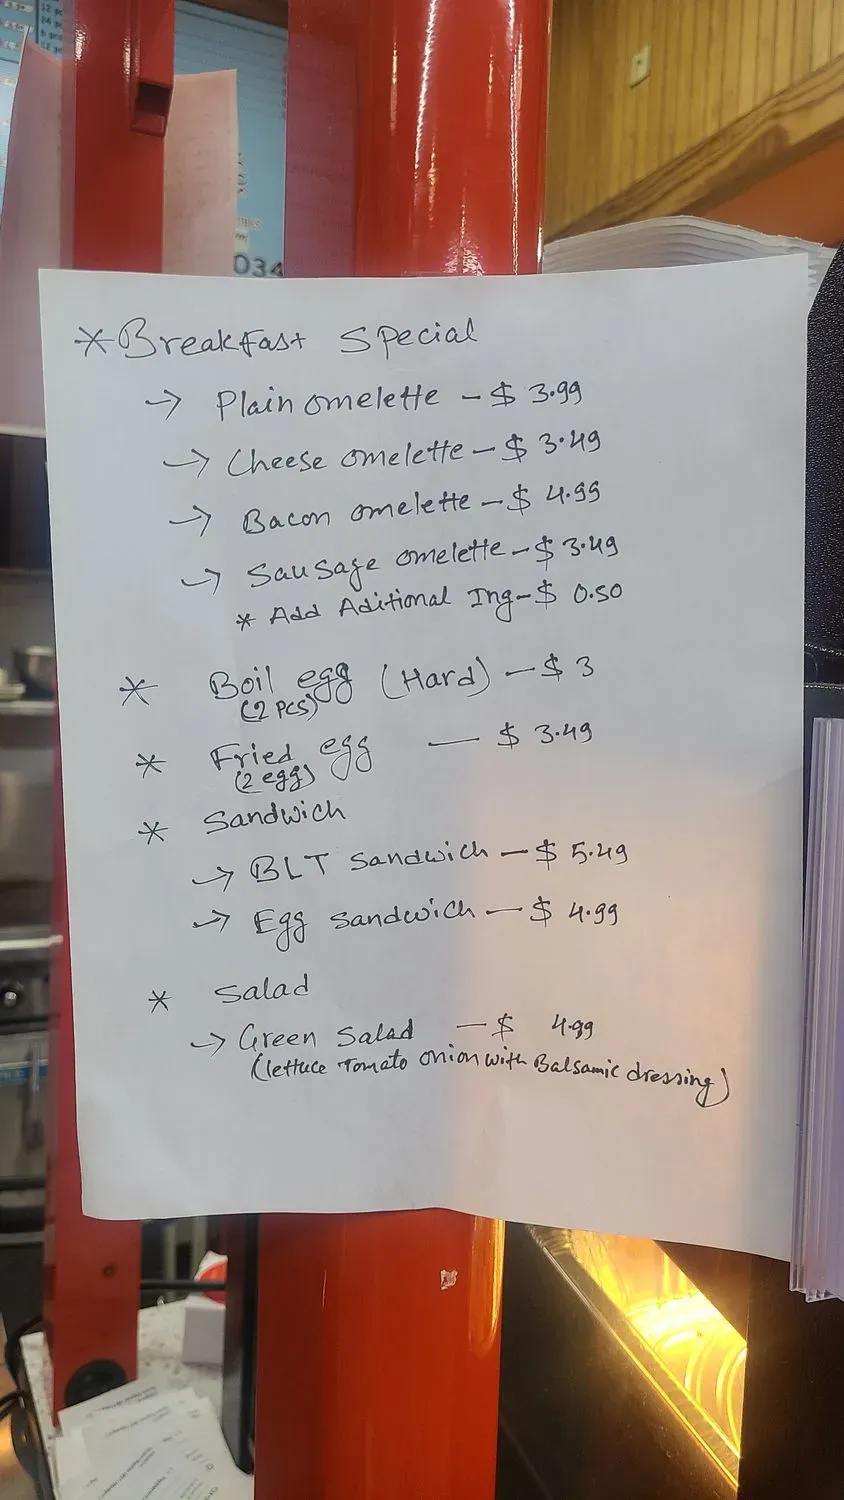 034
*Breakfast Special
→ Plain omelette - $ 3.99
→ Cheese omelette - $ 3.49
→ Bacon omelette - $ 4.99
→ Sausage omelette - $ 3.49
* Add Aditional Ing - $ 0.50
* Boil egg (Hard) - $ 3
(2 Pcs)
* Fried egg — $ 3.49
(2 egg)
* Sandwich
→ BLT Sandwich - $ 5.49
→ Egg Sandwich - $ 4.99
* Salad
→ Green Salad - $ 4.99
(lettuce Tomato onion with Balsamic dressing)